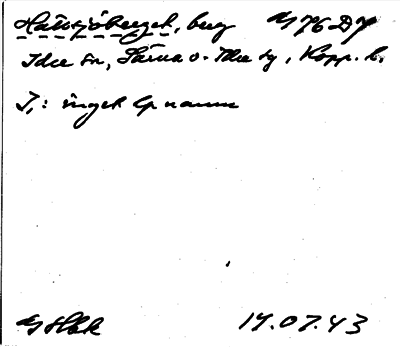 Hätsjöberget, berg 76 D7
Idre sn, Särna o. Idre tg, Kopp. l.
J, : inget lp namn
14.07.43